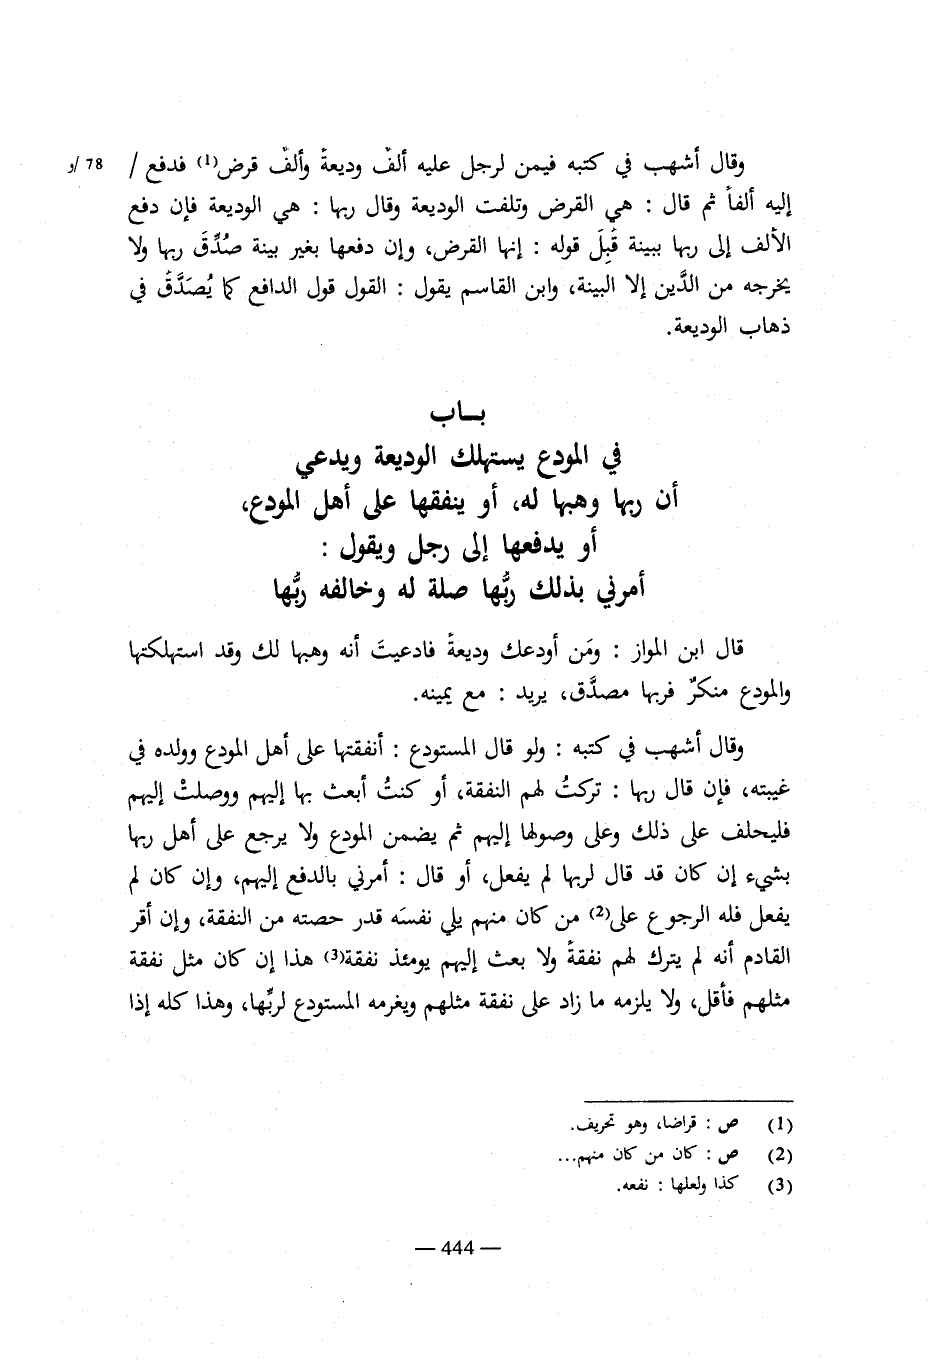 وقال أشهب في كتبه فيمن لرجل عليه ألفٌ وديعةً وألفٌ قرض(1) فدفع / 78 /و
إليه ألفاً ثم قال : هي القرض وتلفت الوديعة وقال ربها : هي الوديعة فإن دفع
الألف إلى ربها ببينة قُبِلَ قوله : إنها القرض، وإن دفعها بغير بينة صُدِّقَ ربها ولا
يخرجه من الدَّين إلا البينة، وابن القاسم يقول : القول قول الدافع كما يُصَدَّقُ في
ذهاب الوديعة.
بـاب
في المودع يستهلك الوديعة ويدعي
أن ربها وهبها له، أو ينفقها على أهل المودع،
أو يدفعها إلى رجل ويقول :
أمرني بذلك ربُّها صلة له وخالفه ربُّها
قال ابن المواز : ومَن أودعك وديعةً فادعيتَ أنه وهبها لك وقد استهلكتها
والمودع منكرٌ فربها مصدَّق، يريد : مع يمينه.
وقال أشهب في كتبه : ولو قال المستودع : أنفقتها على أهل المودع وولده في
غيبته، فإن قال ربها : تركتُ لهم النفقة، أو كنتُ أبعث بها إليهم ووصلتْ إليهم
فليحلف على ذلك وعلى وصولها إليهم ثم يضمن المودع ولا يرجع على أهل ربها
بشيء إن كان قد قال لربها لم يفعل، أو قال : أمرني بالدفع إليهم، وإن كان لم
يفعل فله الرجوع على(2) من كان منهم يلي نفسَه قدر حصته من النفقة، وإن أقر
القادم أنه لم يترك لهم نفقةً ولا بعث إليهم يومئذ نفقة(3) هذا إن كان مثل نفقة
مثلهم فأقل، ولا يلزمه ما زاد على نفقة مثلهم ويغرمه المستودع لربِّها، وهذا كله إذا
(1) ص : قراضا، وهو تحريف.
(2) ص : كان من كان منهم...
(3) كذا ولعلها : نفعه.
— 444 —